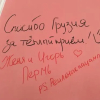 Спасибо Грузия
за тёплый прием!
Женя и Игорь
Пермь